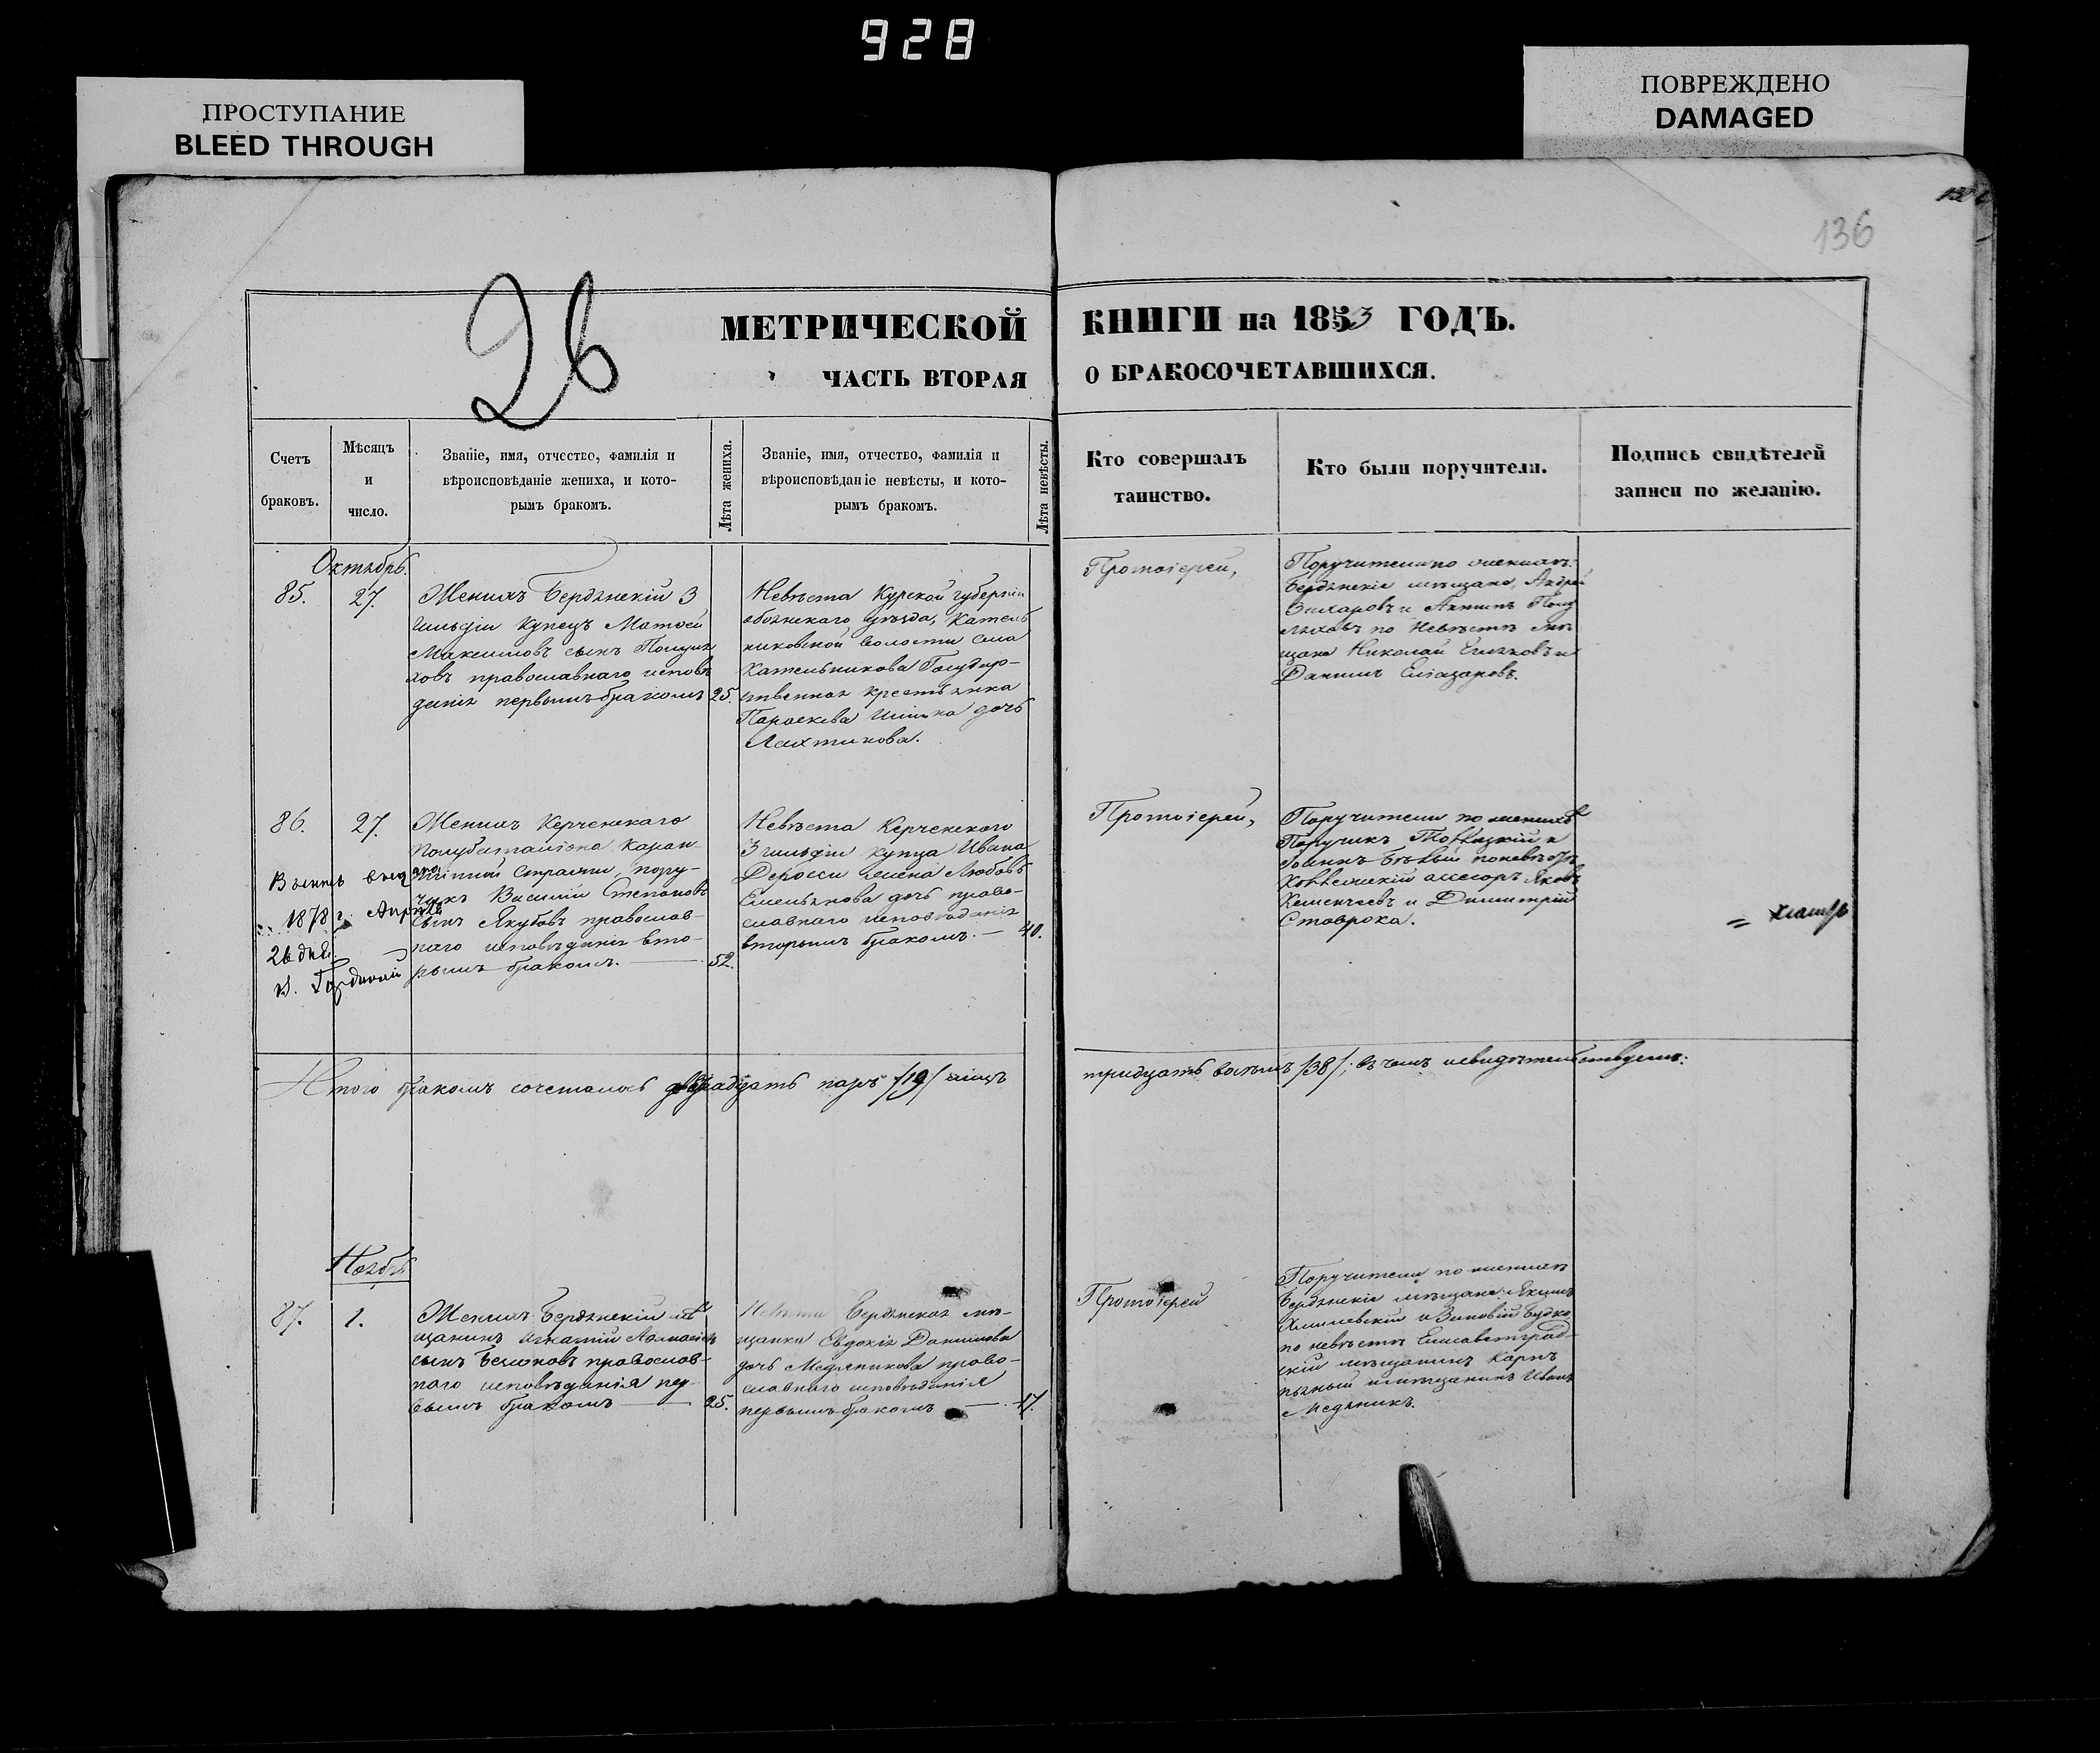 928
ПРОСТУПАНИЕ
BLEED THROUGH
ПОВРЕЖДЕНО
DAMAGED
136
26
МЕТРИЧЕСКОЙ КНИГИ на 1853 ГОДЪ.
ЧАСТЬ ВТОРАЯ О БРАКОСОЧЕТАВШИХСЯ.
Счетъ
браковъ.
Мѣсяцъ
и
число.
Званіе, имя, отчество, фамилія и
вѣроисповѣданіе жениха, и кото-
рымъ бракомъ.
Лѣта жениха.
Званіе, имя, отчество, фамилія и
вѣроисповѣданіе невѣсты, и кото-
рымъ бракомъ.
Лѣта невѣсты.
Кто совершалъ
таинство.
Кто были поручители.
Подпись свидѣтелей
записи по желанію.
Октябрь.
85.
27.
Женихъ Бердянскій 3
гильдіи купецъ Матвей
Максимовъ сынъ
православнаго исповѣ
данія первымъ бракомъ
25.
Невѣста Курской губерніи
обоянскаго уѣзда,
волости села
Котельникова Государ-
ственная крестьянка
Параскева дочь
Лахтикова.
Протоіерей,
Поручители по женихѣ:
Бердянскіе мѣщане, Андрей
Захаровъ и
по Невѣстѣ мѣ
щане Николай и
Даніилъ Еліазаровъ.
86.
27.
Женихъ Керченскаго
Полубаталіона Каран-
тинной Стражи, пору-
чикъ Василій Степановъ
сынъ Якубовъ православ-
наго исповѣданія вто-
рымъ бракомъ.
52.
1878 г. Апрѣля
26 дня
Невѣста Керченскаго
3 гильдіи купца Ивана
Деросси жена Любовь
Емельянова дочь право-
славнаго исповѣданія
вторымъ бракомъ.
40.
Протоіерей,
Поручители по женихѣ
Поручикъ и
по невѣстѣ
Яковъ
и Димитрій
Ставрока.
Итого бракомъ сочеталось паръ /19/ лицъ
тридцать восемь /38/; въ чемъ и свидѣтельствуемъ:
Ноябрь
87.
1.
Женихъ Бердянскій мѣ
щанинъ Игнатій
сынъ православ-
наго исповѣданія пер-
вымъ бракомъ
25.
Невѣста Бердянская мѣ-
щанка Евдокія Данилова
дочь Медяникова право-
славнаго исповѣданія
первымъ бракомъ
17.
Протоіерей
Поручители по женихѣ
Бердянскіе мѣщане: Якимъ
Хмилевскій и Зиновій Будко
по невѣстѣ Елисаветград-
скій мѣщанинъ Карпъ
и мѣщанинъ Иванъ
Медяникъ.